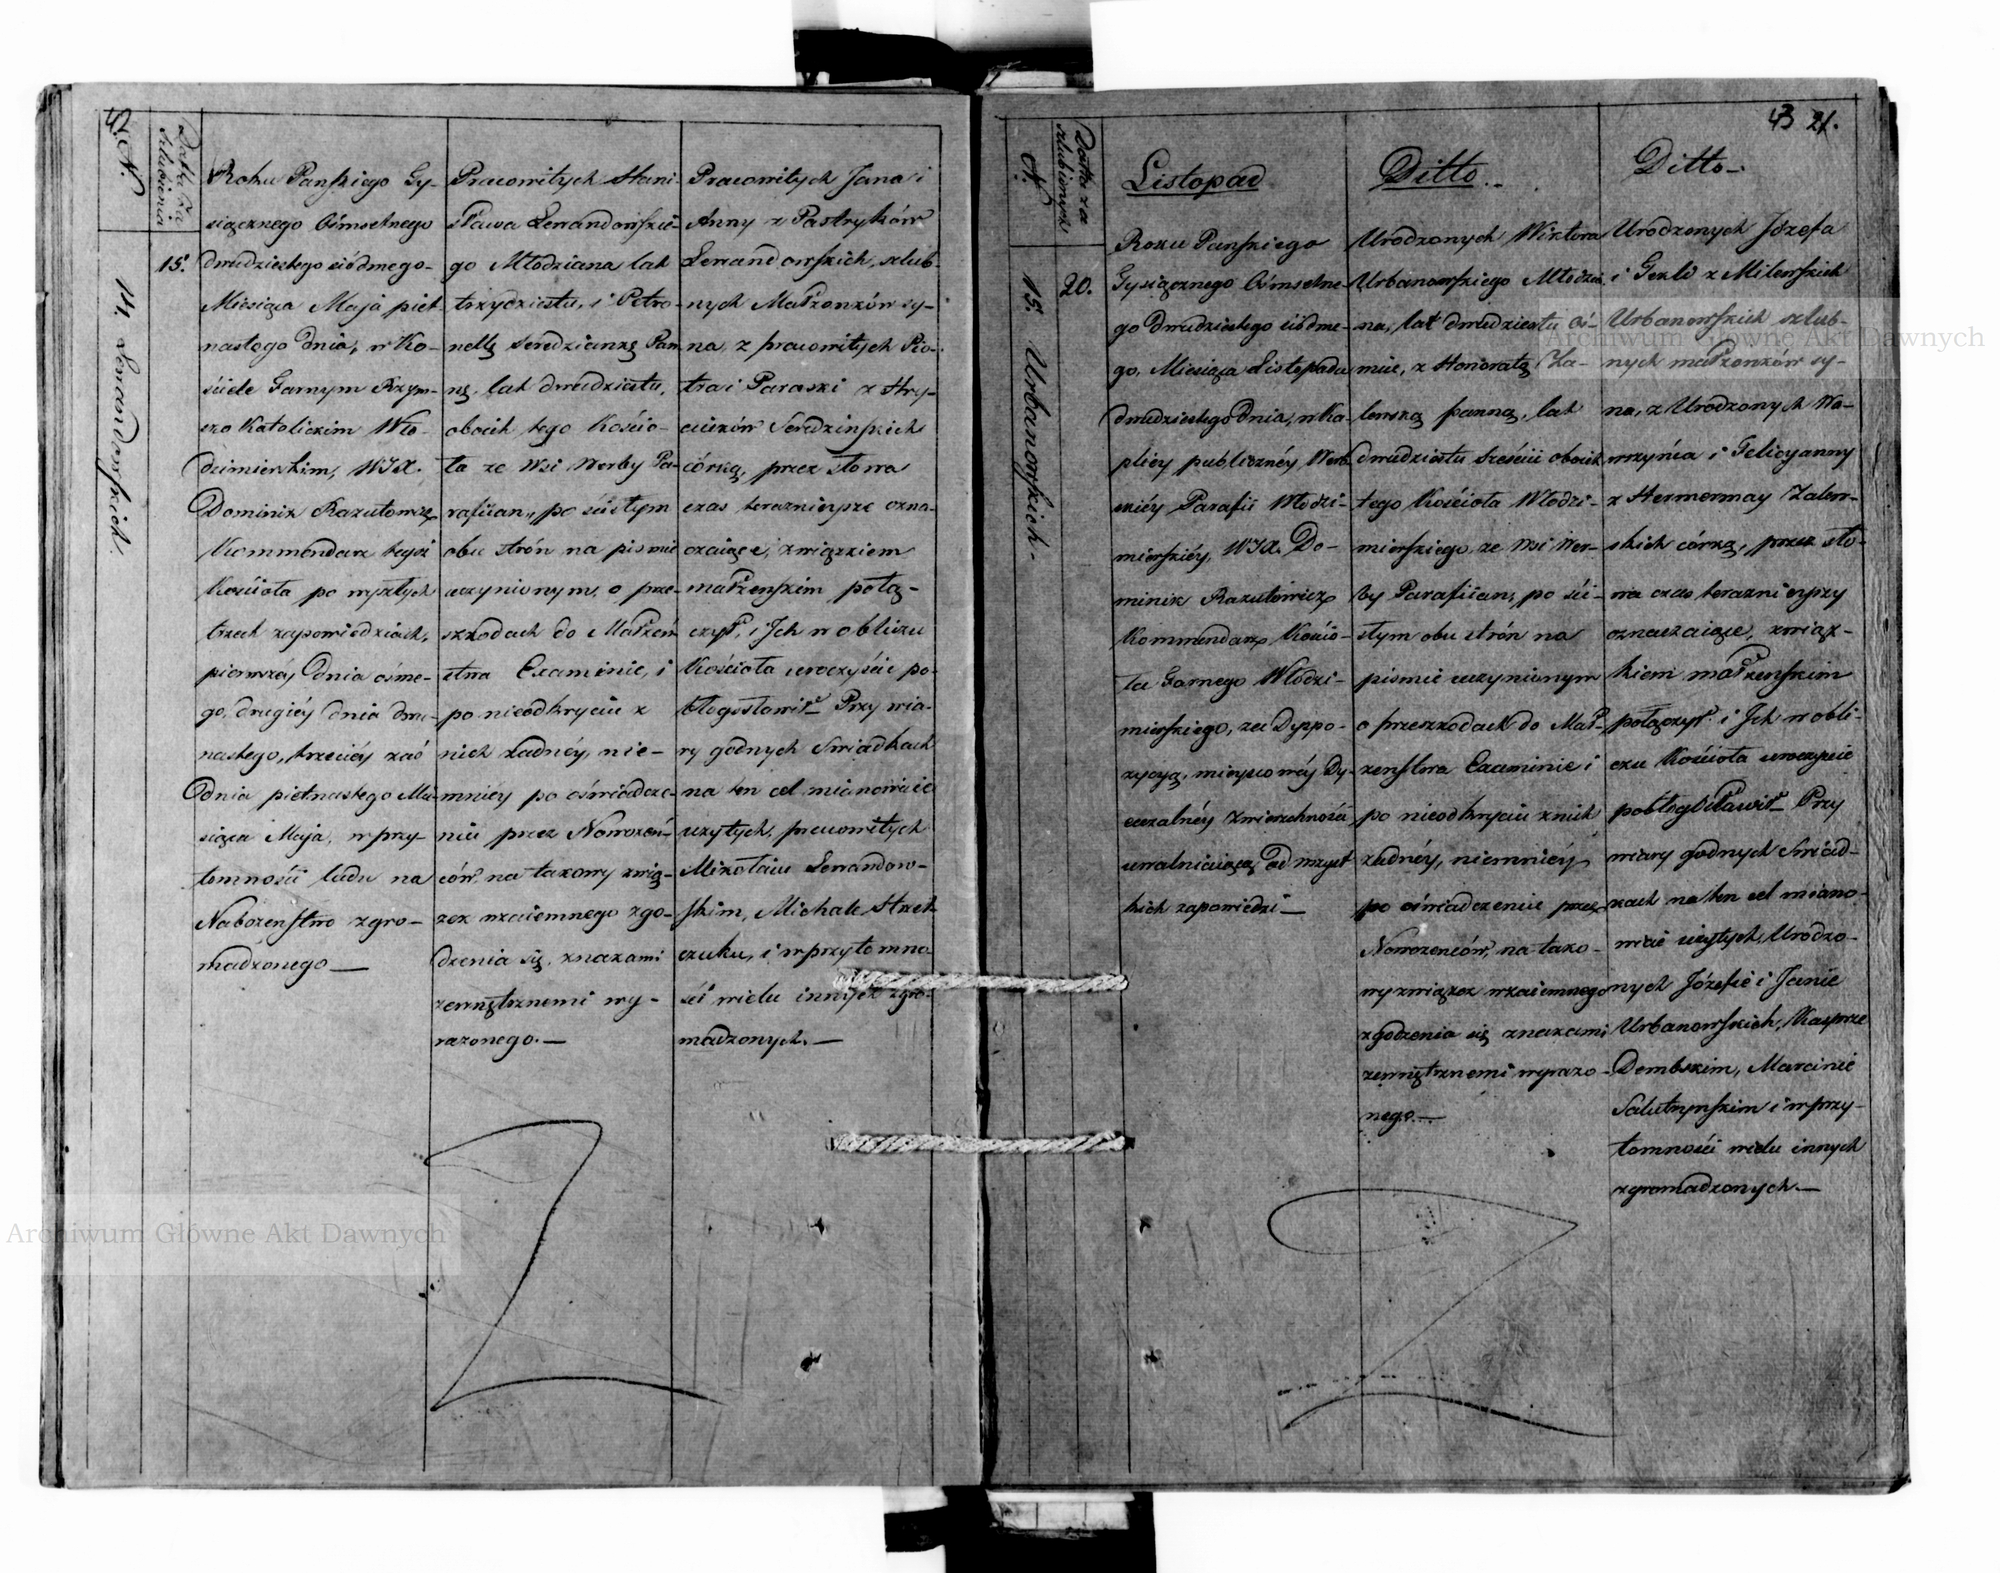 N.
Datta za
szlubienia
15.
14. Lewandowskich.
Roku Pańskiego Ty-
siącznego Ośmsetnego
dwudziestego siódmego-
Miesiąca Maja piet
nastego Dnia, w Ko-
ściele Farnym Rzym-
sko Katolickim Wło-
dzimierskim, WJX.
Dominik Razutowicz
Kommendarz tegoż
Kościoła po wyszłych
trzech zapowiedziach,
pierwszéy Dnia ośme-
go, drugiéy dnia dwu-
nastego, trzeciéy zaś
Dnia pietnastego Mie-
siąca Maja, w przy-
tomności ludu na
Nabożeństwo zgro-
madzonego —
Pracowitych Stani-
sława Lewandowskie-
go Młodziana lat
trzydziestu, i Petro-
nellę Seredziankę Pan-
nę, lat dwudziestu,
oboich tego Kościo-
ła ze Wsi Werby Pa-
rafiian, po ścisłym
obu strón na pismie
uczynionym, o prze-
szkodach do Małżeń
stwa Examinie, i
po nieodkryciu z
nich żadnéy, nie-
mniéy po oświadcze-
niu przez Nowożeń-
ców na takowy zwią-
zek wzaiemnego zgo-
dzenia się, znakami
zewnętrznemi wy-
rażonego. —
Pracowitych Jana i
Anny z Pastryków
Lewandowskich, szlub-
nych Małżonków sy-
na, z pracowitych Pio-
tra i Paraski z Hry-
ciuków Seredzińskich
córką, przez słowa
czas teraznieysze ozna-
czaiące, związkiem
małżeńskim połą-
czył, i Jch w obliczu
Kościoła uroczyście po-
błogosławił — Przy wia-
ry godnych Świadkach
na ten cel mianowicie
użytych, pracowitych
Mikołaiu Lewandow-
skim, Michale Strel-
czuku, i w przytomno
ści wielu innych zgro-
madzonych. —
43 21.
N.
Datta za
szlubionych.
20.
15. Urbanowskich-
Listopad
Roku Pańskiego
Tysiącznego Ośmsetne-
go dwudziestego siódme-
go, Miesiąca Listopada
dwudziestego Dnia, w Ka-
plicy publicznéy Werb-
skiéy Parafii Włodzi-
mierskiéy, WJX. Do-
minik Razutowicz
Kommendarz Kościo-
ła Farnego Włodzi-
mierskiego, za Dyspo-
zycyą, mieyscowéy Dy-
ecezalnéy Zwierzchności
uwalniaiącą, od wszyst
kich zapowiedzi —
Ditto.-
Urodzonych Wiktora
Urbanowskiego Młodzia-
na, lat dwudziestu oś-
miu, z Honoratą Za-
lewską panną, lat
dwudziestu sześciu oboich
tego Kościoła Włodzi-
mierskiego, ze Wsi Wer-
by Parafiian, po ści-
słym obu strón na
pismie uczynionym
o przeszkodach do Mał-
żeństwa Examinie i
po nieodkryciu z nich
żadnéy, niemniéy
po oświadczeniu przez
Nowożeńców, na tako-
wy związek wzaiemnego
zgodzenia się znakami
zewnętrznemi wyrażo-
nego. —
Ditto-
Urodzonych Józefa
i Tekli z Milewskich
Urbanowskich szlub-
nych małżonków sy-
na, z Urodzonych Wa-
wrzyńca i Felicyanny
z Zalew-
skich córką, przez sło-
wa czas teraznieyszy
oznaczaiące, związ-
kiem małżeńskim
połączył i Jch w obli-
czu Kościoła uroczyście
pobłogosławił — Przy
wiary godnych Świad-
kach na ten cel miano-
wicie użytych, Urodzo-
nych Józefie i Janie
Urbanowskich, Kasprze
Dembskim, Marcinie
i w przy-
tomności wielu innych
zgromadzonych. —
Archiwum Główne Akt Dawnych
Archiwum Główne Akt Dawnych